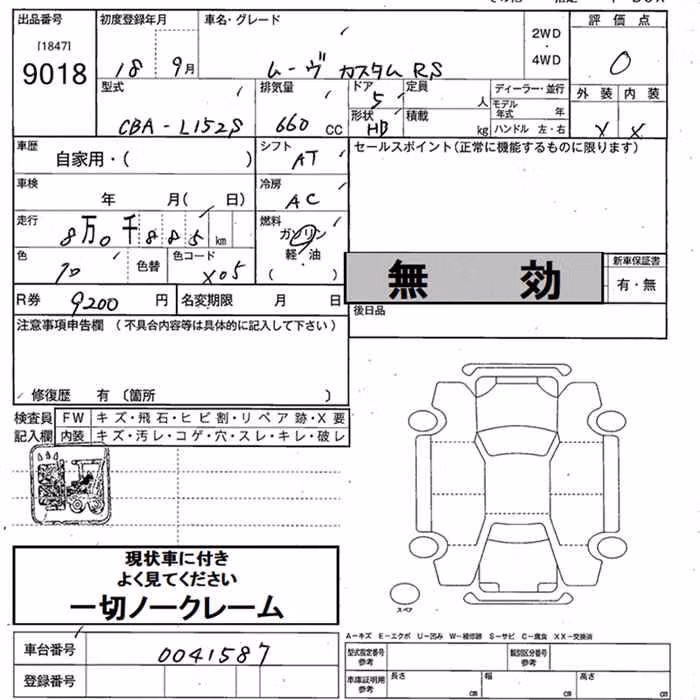 出品番号 初度登録年月 車名・グレード 評価点
[1847]
9018
18 9月 ムーヴ カスタム RS 2WD ・ 4WD 0
型式 排気量 ドア 5 定員 人 ディーラー・並行 外装 内装
CBA-L152S 660 CC 形状 HD 積載 kg モデル年式 年 ハンドル 左・右 X X
車歴 自家用・( ) シフト AT セールスポイント(正常に機能するものに限ります)
車検 年 月( 日) 冷房 AC
走行 8万0千885km 燃料 ガソリン
軽・油
( )
色 色替 色コード X05
無効 新車保証書
有・無
R券 9200 円 名変期限 月 日
後日品
注意事項申告欄 (不具合内容等は具体的に記入して下さい)
修復歴 有 〔箇所 〕
検査員 FW キズ・飛石・ヒビ割・リペア跡・X要
記入欄 内装 キズ・汚レ・コゲ・穴・スレ・キレ・破レ
現状車に付き
よく見てください
一切ノークレーム
スペア
A-キズ E-エクボ U-凹み W-補修跡 S-サビ C-腐食 XX-交換済
車台番号 0041587 型式指定番号 参考 類別区分番号 参考
登録番号 車庫証明用 参考 長さ cm 幅 cm 高さ cm